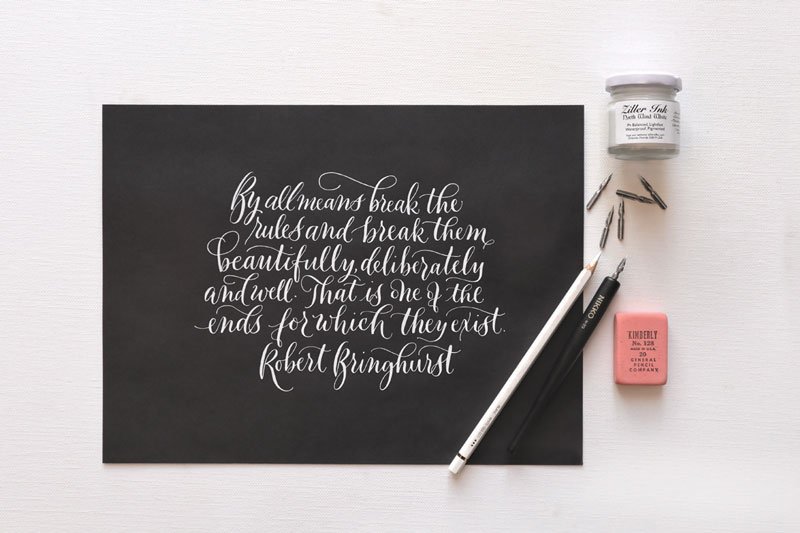 By all means break the
rules and break them
beautifully, deliberately
and well. That is one of the
ends for which they exist.
Robert Bringhurst
Ziller Ink
North Wind White
Waterproof, Pigmented
NIKKO
KIMBERLY
No. 128
MADE IN U.S.A.
20
GENERAL
PENCIL
COMPANY